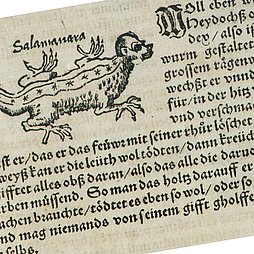 Salamandra
Woll eben
Heydochß
dey / also is
wurm gestaltet
grossem rägenw
wechßt er vnnd
für / in der hitz
vnd verschma
ist er / das er das feüwr mit seiner thür löschet
weyß kan er die leüth wol tödten / dann kreüch
gifftet alles obß daran / also das alle die daruo
arben müssend. So man das holtz darauff er
achen brauchte / tödtet es eben so wol / oder so
nd mag niemands von seinem gifft gholffe
selbs.